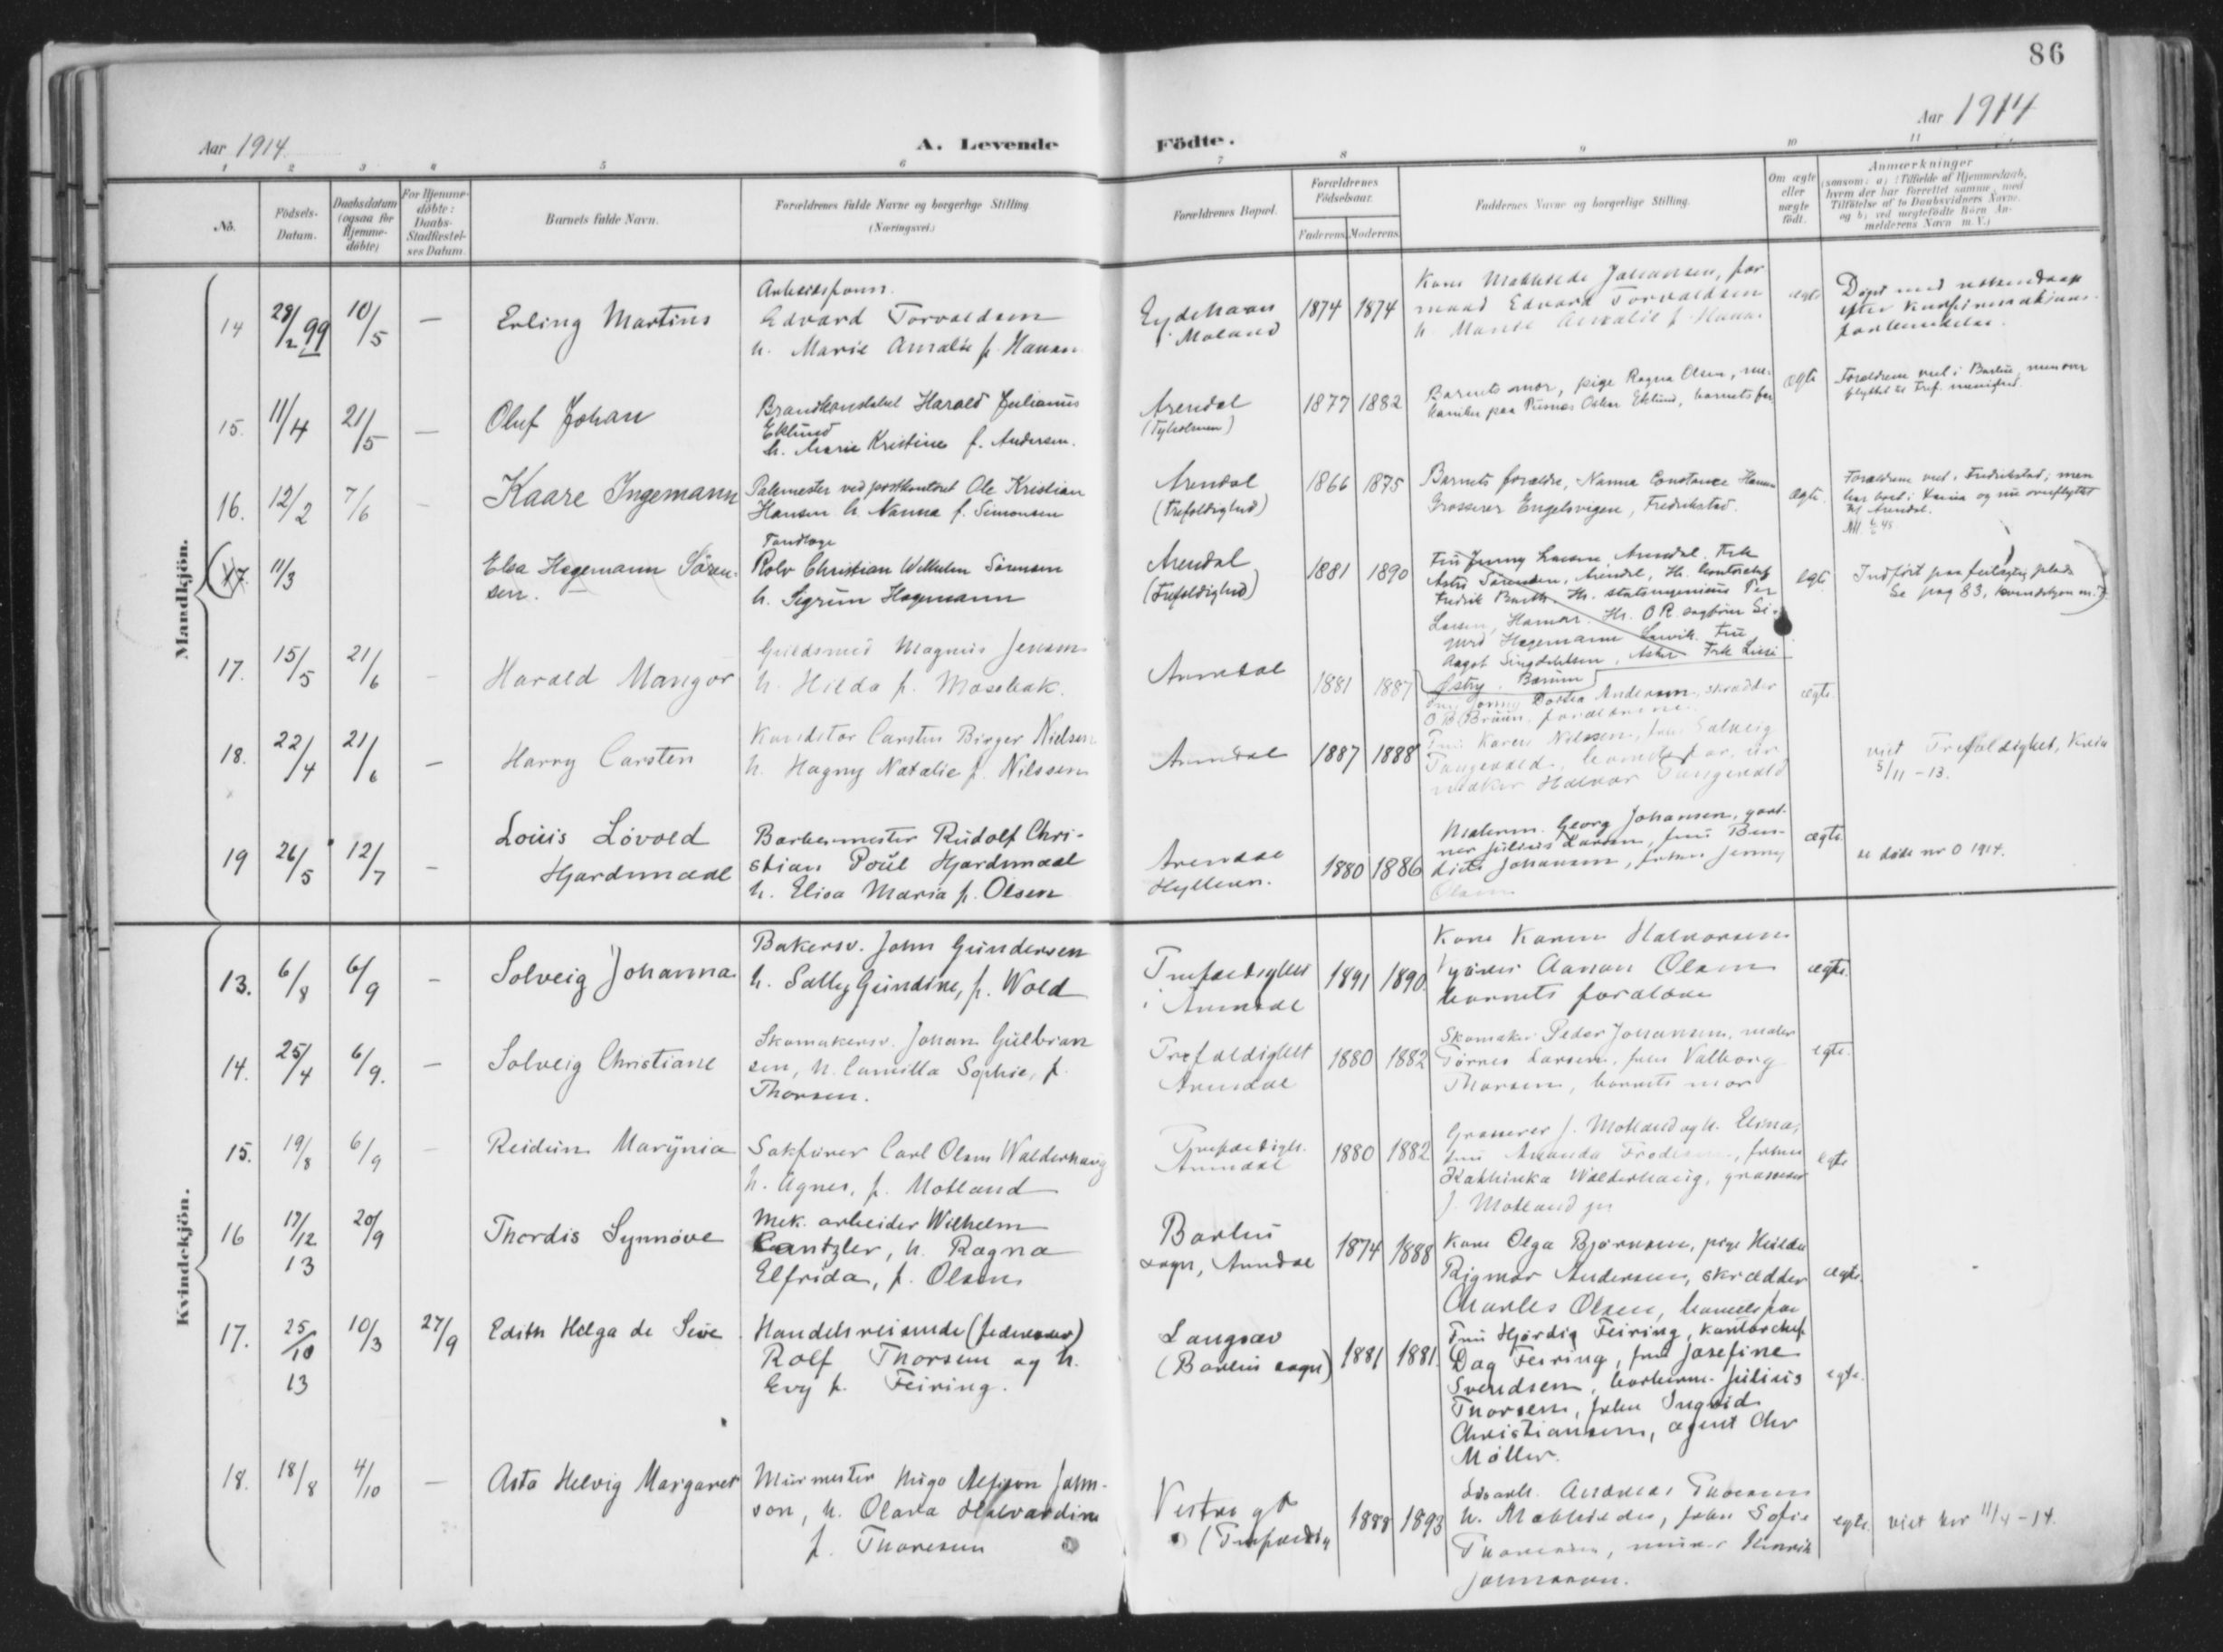 86
Aar 1914
A. Levende
Födte.
Aar 1914
1
2
3
4
5
6
7
8
9
10
11
No.
Födsels-
Datum.
Daabsdatum
(ogsaa for
Hjemme-
döbte)
For Hjemme-
döbte:
Daabs-
Stadfæstel-
ses Datum.
Barnets fulde Navn.
Forældrenes fulde Navne og borgerlige Stilling
(Næringsvei.)
Forældrenes Bopæl.
Forældrenes
Födselsaar.
Faderens
Moderens
Faddernes Navne og borgerlige Stilling.
Om ægte
eller
uægte
födt.
Anmærkninger
(saasom: a) i Tilfælde af Hjemmedaab,
hvem der har forrettet samme, med
Tilföielse af to Daabsvidners Navne.
og b) ved uægtefödte Börn An-
melderens Navn m. V.)
Mandkjön.
14
28/2 99
10/5
—
Erling Martius
Arbeidsform.
Edvard Torvaldsen
h. Marie Amalie f. Hansen
Eydehavn
i Moland
1874
1874
Kone Mathilde Johansen, for
mand Edvard Torvaldsen
h. Marie Amalie f. Hansen
ægte
Døpt med
efter Konfirmasjons
forberedelse.
15.
11/4
21/5
—
Oluf Johan
Brandkonstabel Harald Julianus
Eklund
h. Marie Kristine f. Andersen.
Arendal
(Tyholmen)
1877
1882
Barnets mor, pige Ragna Olsen, me-
kaniker paa Pusnes Oskar Eklund, barnets far
ægte
Forældrene viet i Barbu, men over
flyttet til Tref. menighed.
16.
12/2
7/6
—
Kaare Ingemann
Pakmester ved postkontoret Ole Kristian
Hansen h. Nanna f. Simonsen
Arendal
(Trefoldighed)
1866
1875
Barnets forældre, Nanna Constance Hansen
Grosserer Engelsvigen, Fredrikstad.
ægte.
Forældrene viet i Fredrikstad; men
har boet i Krania og nu overflyttet
til Arendal.
17.
11/3
Elsa Hagemann Sören-
sen.
Tandlæge
Rolv Christian Wilhelm Sörensen
h. Sigrun Hagemann
Arendal
(Trefoldighed)
1881
1890
Fru Jenny Larsen, Arendal, Frk
Astri Sörensen, Arendal, Hr. kontorchef
Fredrik Barth, Hr. statsingeniör Per
Larsen, Hamar. Hr. O.R. sagförer Si-
gurd Hagemann Larvik. Fru
Aagot Singdahlsen, Asker Frk Lissi
Astry. Bærum
egte
Indfört paa feilagtig plads
Se pag 83, kvindekjøn nr. 7
17.
15/5
21/6
—
Harald Mangor
Guldsmed Magnus Jensen
h. Hilda f. Mosebak.
Arendal
1881
1887
Dortea Andersen, skrædder
O B Bruun, forældrene.
ægte
18.
22/4
21/6
—
Harry Carsten
Konditor Carsten Birger Nielsen
h. Hagny Natalie f. Nilssen
Arendal
1887
1888
Fru Karen Nilssen, frk Solveig
Tangevald, barnets far, ur
maker Halvor Tangevald
viet Trefoldighet, Kria
5/11 - 13.
19
26/5
12/7
—
Louis Lövold
Hjardemaal
Barbermester Rudolf Chri-
stian Poul Hjardemaal
h. Elisa Maria f. Olsen
Arendal
Hylleren.
1880
1886
Malerm. Georg Johansen, gart-
ner Julius Larsen, fru Ben-
dicte Johansen, frøken Jenny
Olsen
ægte
se døde nr 0 1914.
Kvindekjön.
13.
6/8
6/9
—
Solveig Johanna
Bakersv. John Gundersen
h. Sally Gundine, f. Wold
Trefoldighet
i Arendal
1891
1890
Kone Karen Halvorsen
Fyrbøter Aanon Olsen
barnets forældre
ægte.
14.
25/4
6/9.
—
Solveig Christiane
Skomakersv. Johan Gulbran
sen, h. Camilla Sophie, f.
Thorsen.
Trefoldighet
Arendal
1880
1882
Skomaker Peder Johansen, maler
Tørres Larsen, frk Valborg
Thorsen, barnets mor
egte.
15.
19/8
6/9
—
Reidun Marynia
Sakfører Carl Olsen Walderhaug
h. Agnes, f. Motland
Trefoldigh.
Arendal
1880
1882
Grosserer J. Motland og h. Elina,
fru Amanda, frøken
Kathinka Walderhaug, grosserer
J. Motland jr
egte
16
17/12
13
20/9
Thordis Synnöve
Mek. arbeider Wilhelm
Cantzler, h. Ragna
Elfrida, f. Olsen
Barbu
sogn, Arendal
1874
1888
Kone Olga Bjørnsen, pige Hulda
Rigmor Andersen, skrædder
Charles Olsen, barnets far
ægte.
17.
25/10
13
10/3
27/9
Edith Helga de Seve
Handelsreisende (federvarer)
Rolf Thorsen og h.
Evy f. Feiring.
Langsæv
(Barbu sogn)
1881
1881.
Fru Hjørdis Feiring, kontorchef
Dag Feiring, fru Josefine
Svendsen, barberm. Julius
Thorsen, frøken Ingrid
Christiansen, agent Chr
Møller.
egte.
18.
18/8
4/10
—
Asta Helvig Margaret
Murmester Hugo Alfson John-
son, h. Olava Halvardine
f. Thoresen
Vestre gt
(Trefoldig
1888
1893
Andreas Thoresen
h. Mathilde, frøken Sofie
Thoresen, murer Henrik
Johnsson.
egte.
viet her 11/4 - 14.